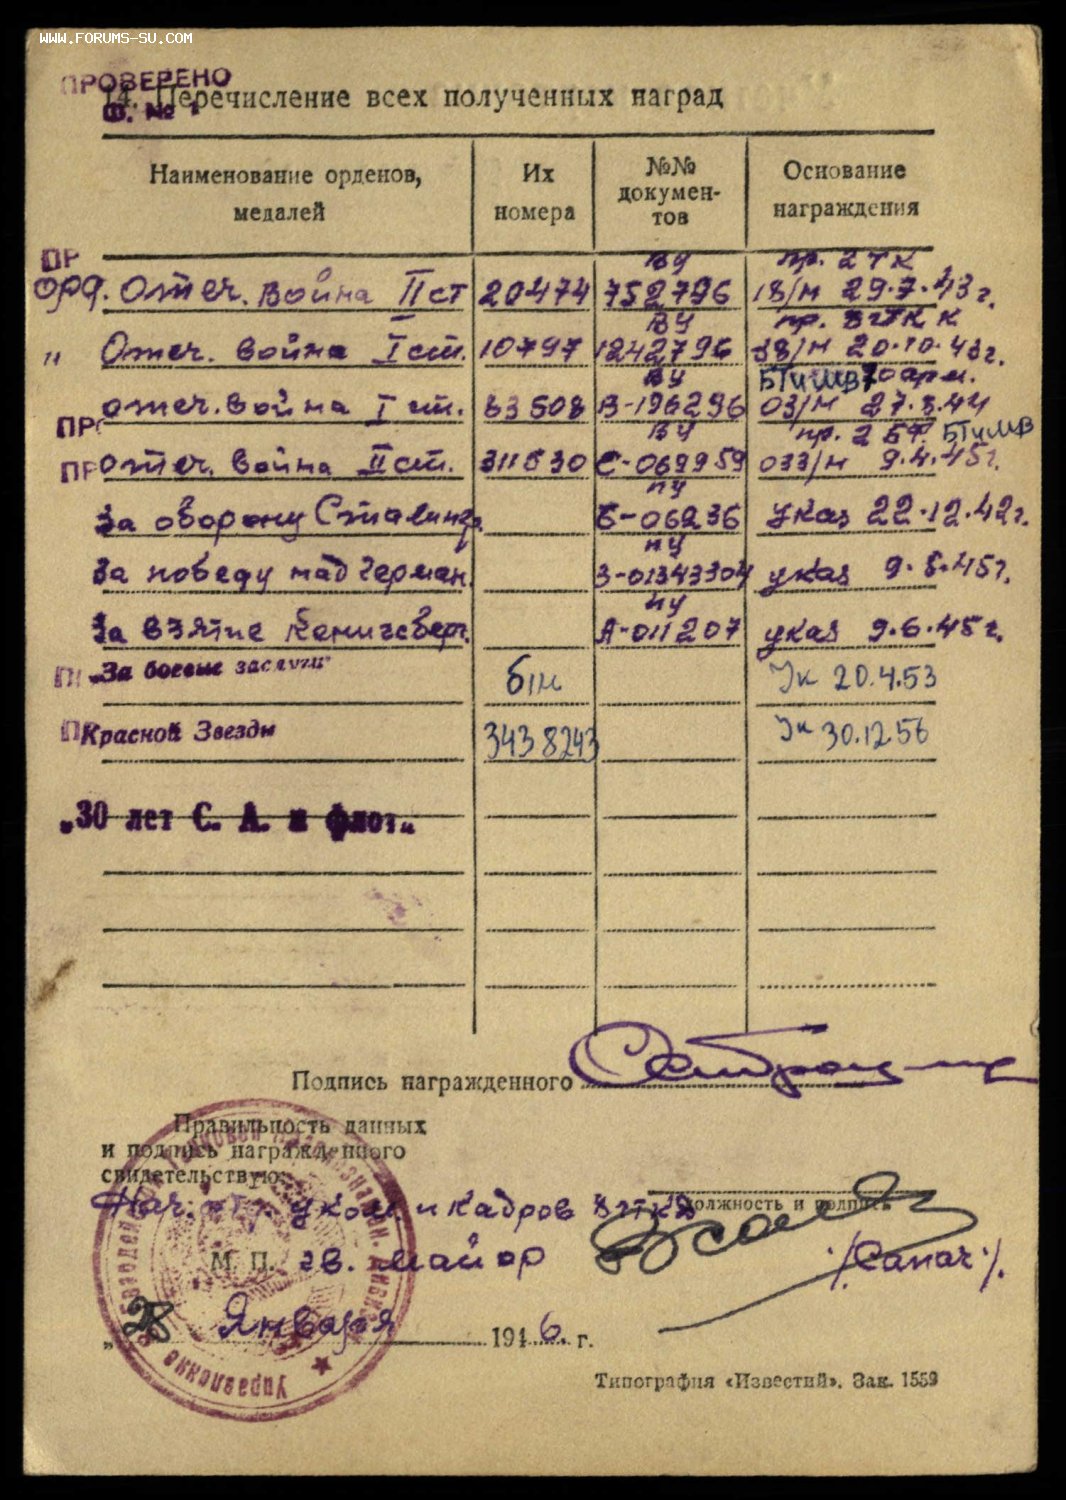 WWW.FORUMS-SU.COM
ПРОВЕРЕНО
Ф. № 1
14. Перечисление всех полученных наград
Наименование орденов, медалей
Их номера
№№ докумен-тов
Основание награждения
ПР
орд. Отеч. война II ст 20474 ву 752796 пр. 2 ТК 18/н 29.7.43 г.
" Отеч. война I ст. 10797 ву 1242796 пр. 8 гТК К 38/н 20.10.43 г.
отеч. война I ст. 63508 ву В-196296 БТиМВ 70 арм. 03/н 27.8.44
ПР
ПР отеч. война II ст. 311530 ву С-069959 пр. 2 БФ. БТиМВ 033/н 9.4.45 г.
За оборону Сталингр. пу Б-06236 указ 22.12.42 г.
За победу над Герман. пу З-01343304 указ 9.5.45 г.
За взятие Кенигсберг. пу А-011207 указ 9.6.45 г.
П „За боевые заслуги" б/н Ук 20.4.53
П Красной Звезды 3438243 Ук 30.12.56
„30 лет С. А. и флот„
Подпись награжденного
Правильность данных
и подпись награжденного
свидетельствую:
Нач. отд. уком. и кадров 8 гтк
должность и подпись
М. П. гв. майор /Сапач/.
„28 Января 1946. г.
Управление
Типография «Известий». Зак. 1559